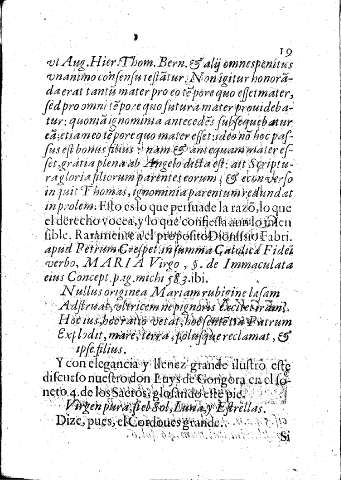 19
vt Aug. Hier. Thom. Bern. & alij omnes penitus
vnanimo consensu testãtur. Non igitur honorã-
da erat tantũ mater pro eo tẽpore quo esset mater,
sed pro omni tẽpore quo futura mater prouideba-
tur: quoniã ignominia antecedẽs subsequebatur
eã; etiam eo tẽpore quo mater esset: ideo nõ hoc pas-
sus est bonus filius: nam & antequam mater es-
set, gratia plena ab Angelo dicta est: ait Scriptu-
ra gloria filiorum parentes eorum; & è conuerso
inquit Thomas, ignominia parentum redundat
in prolem. Esto es lo que persuade la razõ, lo que
el derecho vocea, y lo que confiessa aun lo insen
sible. Raramente a el proposito Dionisio Fabri.
apud Petrum Crespet in summa Catolica Fidei
verbo, MARIA Virgo, §. de Immaculata
eius Concept. pag. michi 583. ibi.
Nullus originea Mariam rubigine læsam
Adstruat, vltricem ne pignoris
Hoc ius, hoc ratio vetat, hoc Patrum
Explodit, mare, terra, polusque reclamat, &
ipse filius.
Y con elegancia y llenez grande ilustrò este
discurso nuestro don Luys de Gongora en el so-
neto 4. de los Sacros, glosando este pie.
Virgen pura, si el Sol, Luna, y Estrellas.
Dize, pues, el Cordoues grande.
Si